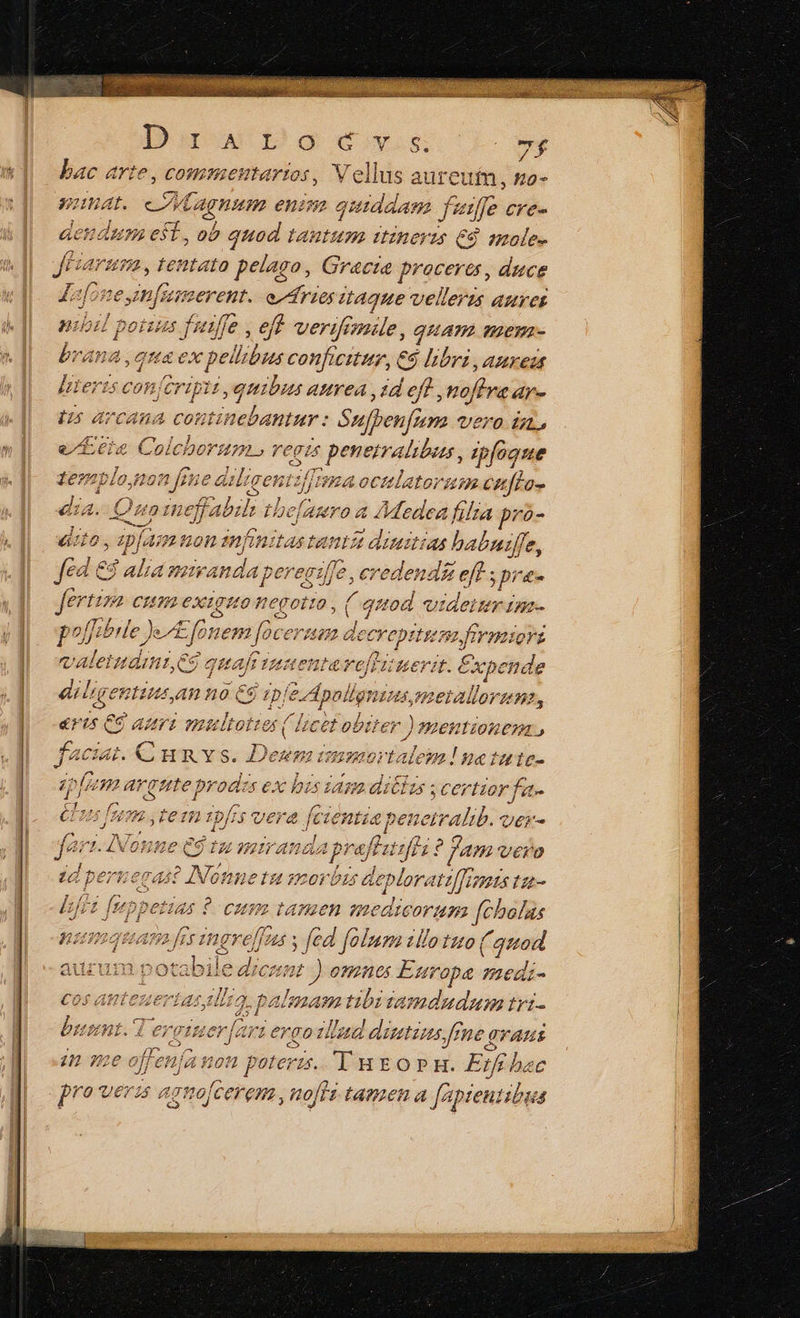 DIALOGVS. 75
hac arte, commentarios, Vellus aureum, no-
minat. Magnum enim quiddam fuisse cre-
dendum est, ob quod tantum itineris & mole-
stiarum, tentato pelago, Graeciae proceres, duce
Iasone, insumerent. Aries itaque velleris aurei
nihil potius fuisse, est verisimile, quam mem-
brana, quae ex pellibus conficitur, & libri, aureis
literis conscripti, quibus aurea, id est, nostrae ar-
tis arcana continebantur: Suspensum vero in
Aëtae Colchorum regis penetralibus, ipsoque
templo, non sine diligentissima oculatorum custo-
dia. Quo ineffabili thesauro a Medea filia pro-
dito, ipsam non infinitas tantum divitias habuisse,
sed & alia miranda peregisse, credendum est; prae-
sertim cum exiguo negotio, (quod videtur im-
possibile) Æsonem socerum decrepitum, firmiori
valetudini, & quasi iuventae restituerit. Expende
diligentius, an no & ipse Apollonius, metallorum,
aeris & auri multoties (licet obiter) mentionem
faciat. CHRYS. Deum immortalem! na tu te-
ipsum argute prodis ex his iam dictis; certior fa-
ctus sum, te in ipsis verae scientiae penetralib. ver-
sari. Nonne & tu miranda praestitisti? Iam vero
id pernegas? Nonne tu morbis deploratissimis tu-
listi suppetias? cum tamen medicorum scholas
numquam sis ingressus; sed solum illo tuo (quod
aurum potabile dicunt) omnes Europae medi-
cos anteuertas, illiq, palmam tibi iamdudum tri-
buunt. Tergiuersari ergo illud diutius, sine graui
in me offensa non poteris. THEOPH. Etsi haec
pro veris agnoscerem, nosti tamen a sapientibus